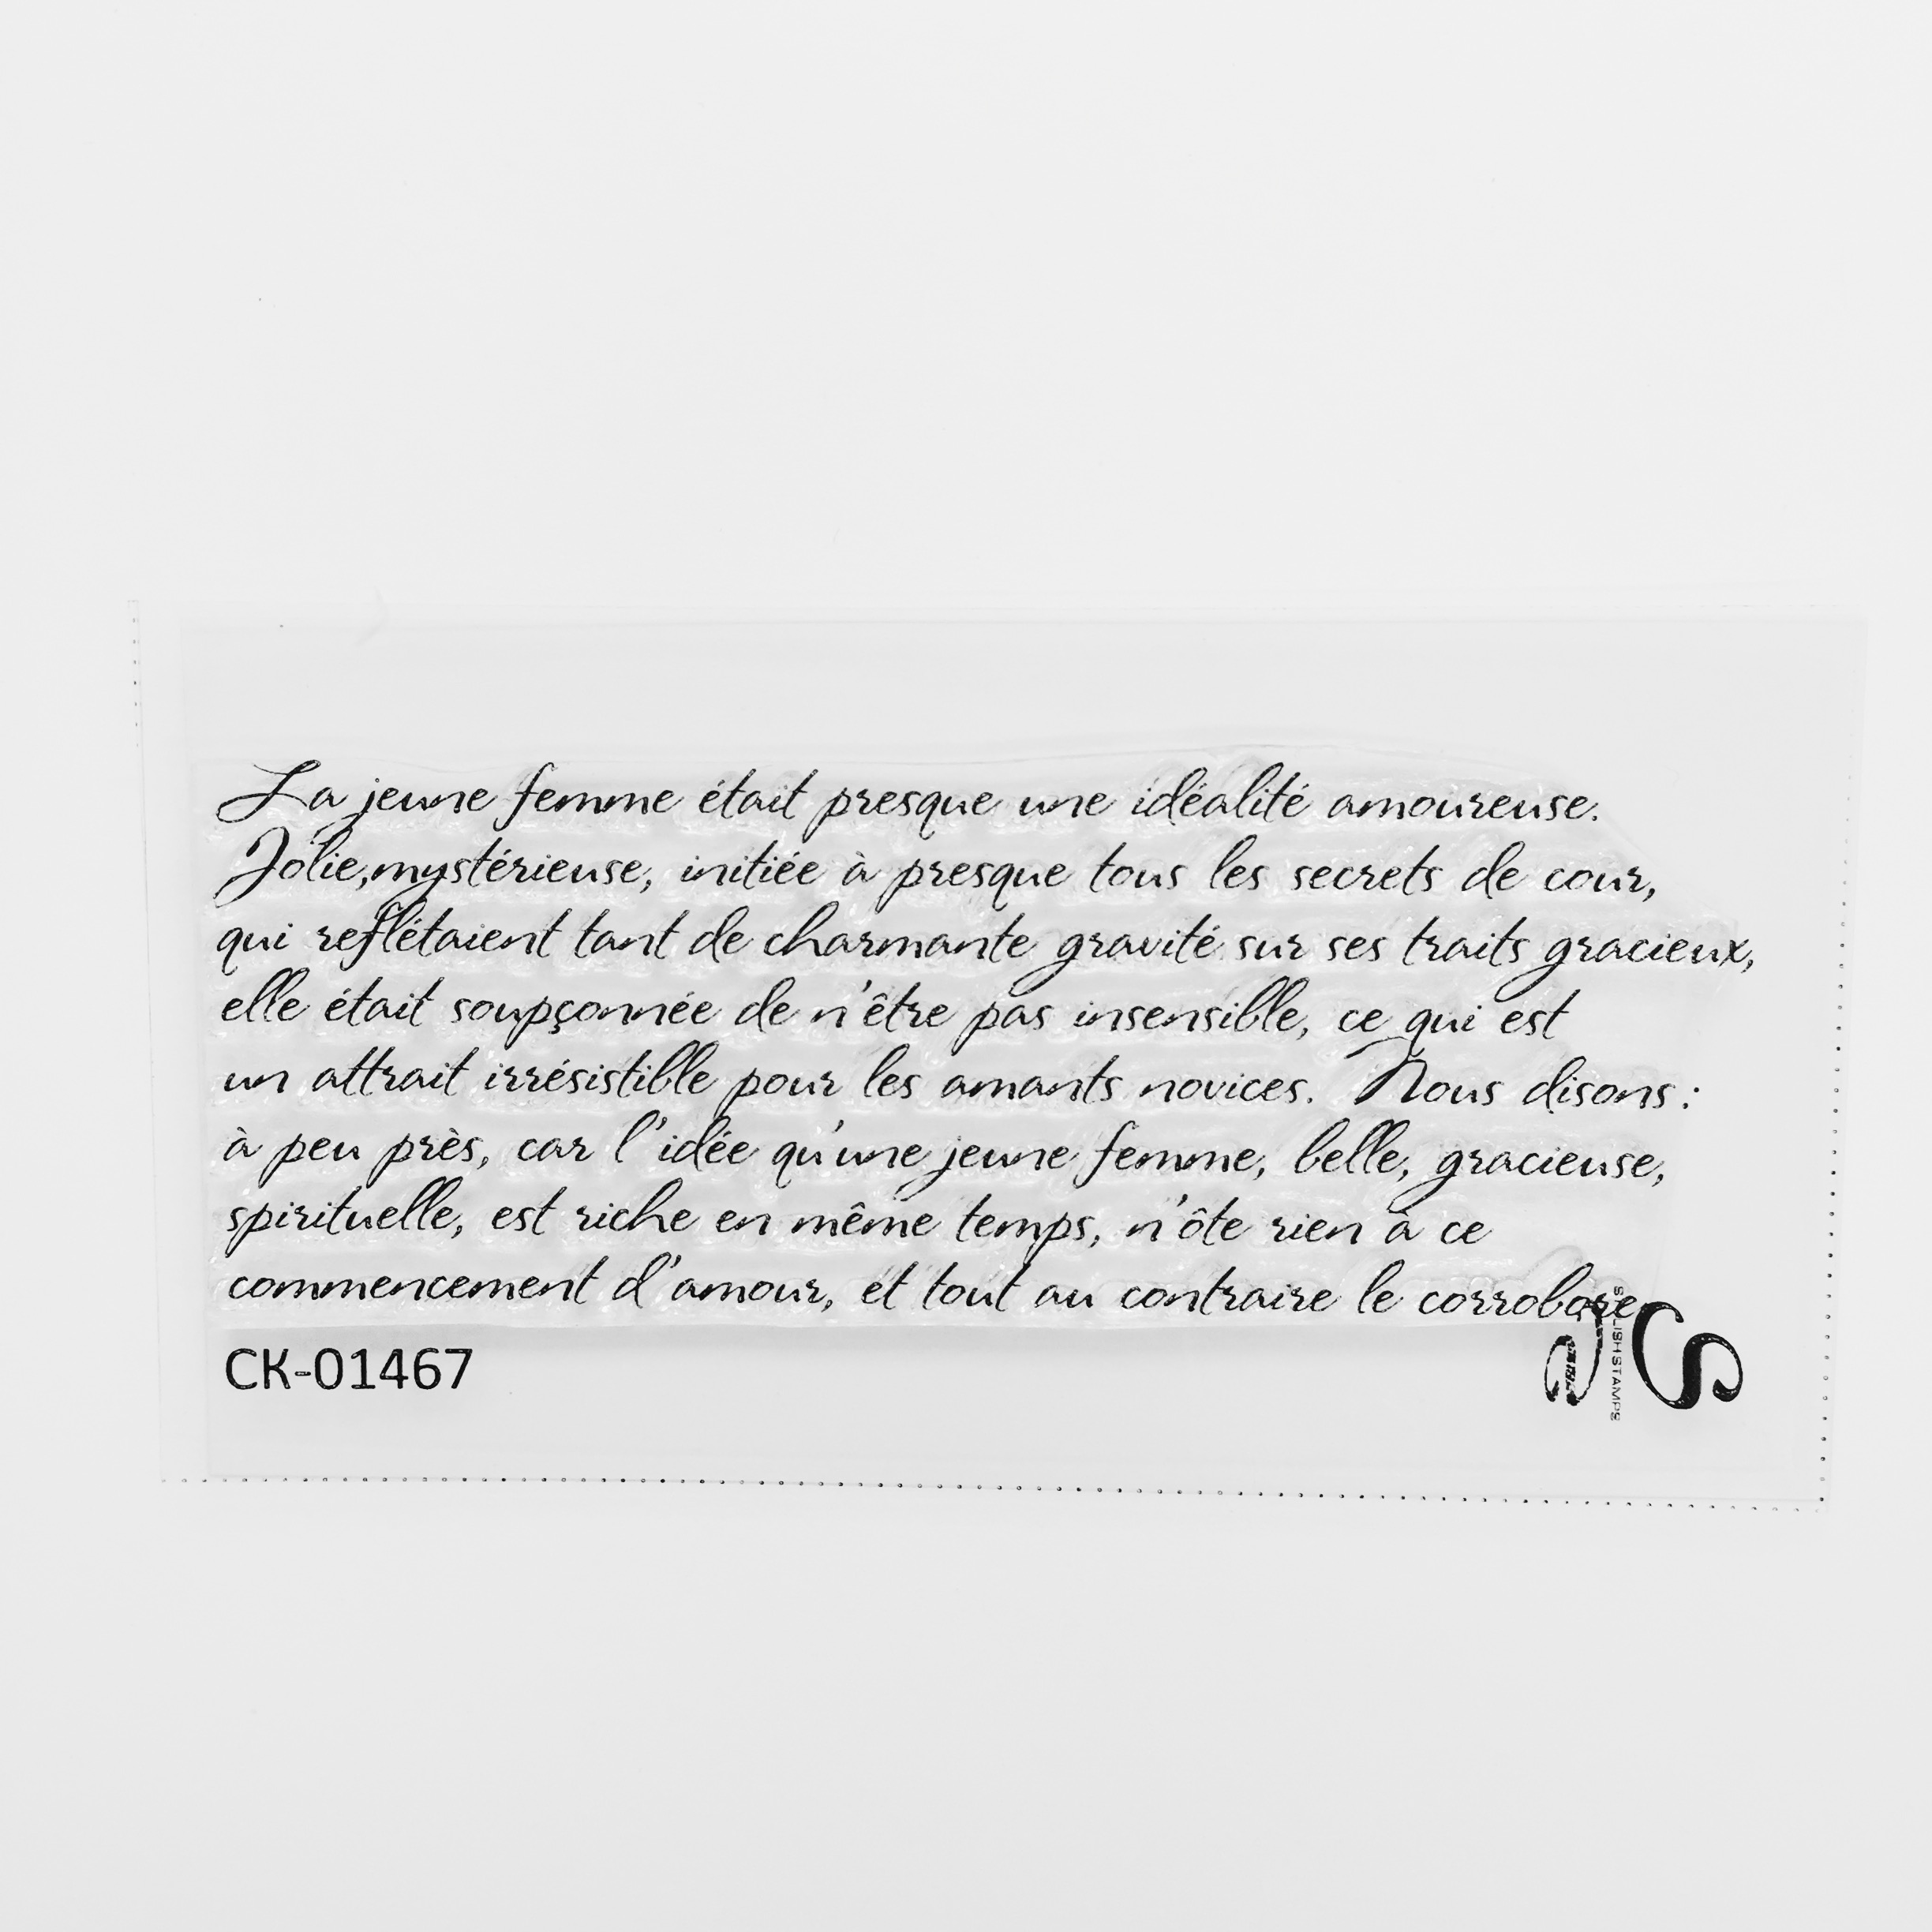 La jeune femme était presque une idéalité amoureuse.
Jolie,mystérieuse, initiée à presque tous les secrets de cour,
qui reflétaient tant de charmante gravité sur ses traits gracieux,
elle était soupçonnée de n'être pas insensible, ce qui est
un attrait irrésistible pour les amants novices. Nous disons :
à peu près, car l'idée qu'une jeune femme, belle, gracieuse,
spirituelle, est riche en même temps, n'ôte rien à ce
commencement d'amour, et tout au contraire le corrobore.
CK-01467